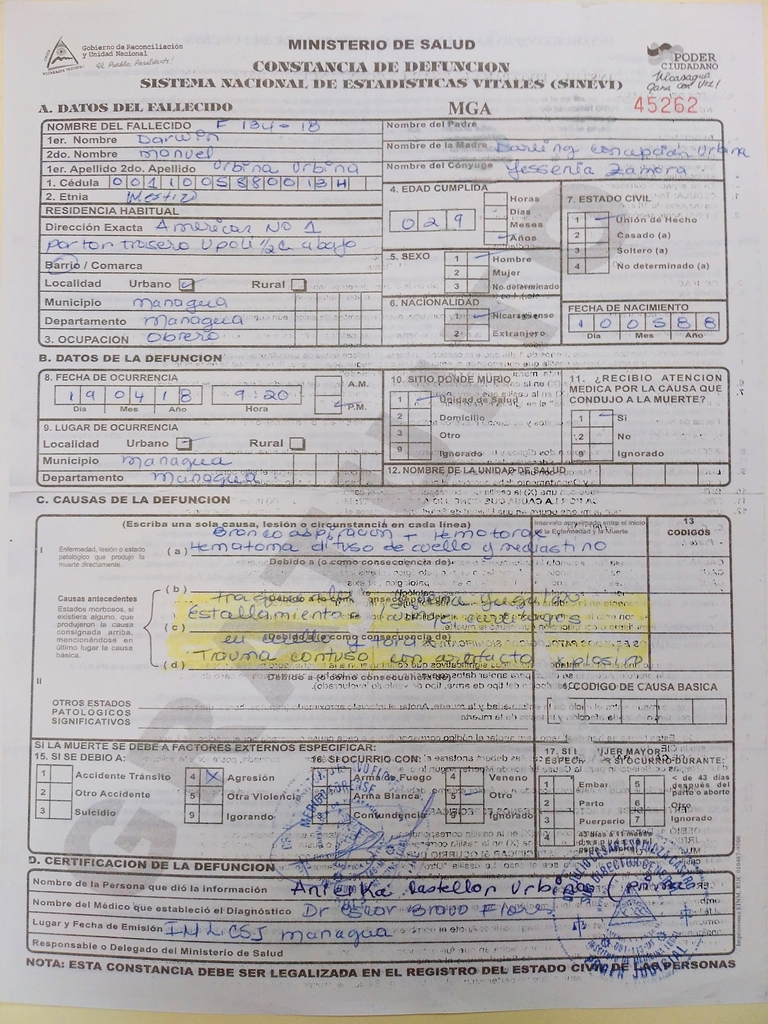 Gobierno de Reconciliación
y Unidad Nacional
El Pueblo, Presidente!
MINISTERIO DE SALUD
CONSTANCIA DE DEFUNCION
SISTEMA NACIONAL DE ESTADISTICAS VITALES (SINEVI)
PODER
CIUDADANO
Nicaragua
Gana con Vos!
A. DATOS DEL FALLECIDO
MGA
45262
NOMBRE DEL FALLECIDO F 134-18
1er. Nombre Darwin
2do. Nombre Manuel
1er. Apellido 2do. Apellido Urbina Urbina
1. Cédula 0011005880013H
2. Etnia Mestizo
RESIDENCIA HABITUAL
Dirección Exacta Americas No 1
porton trasero Upoli 1/2c abajo
Barrio / Comarca
Localidad Urbano Rural
Municipio Managua
Departamento Managua
3. OCUPACION Obrero
Nombre del Padre
Nombre de la Madre Darling Concepción Urbina
Nombre del Cónyuge Yessenia Zamora
4. EDAD CUMPLIDA
029
Horas
Días
Meses
Años
5. SEXO
1 Hombre
2 Mujer
3 No determinado
6. NACIONALIDAD
1 Nicaragüense
2 Extranjero
7. ESTADO CIVIL
1 Unión de Hecho
2 Casado (a)
3 Soltero (a)
4 No determinado (a)
FECHA DE NACIMIENTO
100588
Día Mes Año
B. DATOS DE LA DEFUNCION
8. FECHA DE OCURRENCIA
190418 9:20
Día Mes Año Hora
A.M.
P.M.
9. LUGAR DE OCURRENCIA
Localidad Urbano Rural
Municipio Managua
Departamento Managua
10. SITIO DONDE MURIO
1 Unidad de Salud
2 Domicilio
3 Otro
9 Ignorado
11. ¿RECIBIO ATENCION
MEDICA POR LA CAUSA QUE
CONDUJO A LA MUERTE?
1 Si
2 No
9 Ignorado
12. NOMBRE DE LA UNIDAD DE SALUD
C. CAUSAS DE LA DEFUNCION
(Escriba una sola causa, lesión o circunstancia en cada línea)
Intervalo aproximado entre el inicio
de la Enfermedad y la Muerte
13
CODIGOS
I
Enfermedad, lesión o estado
patológico que produjo la
muerte directamente.
Broncoaspiración + Hemotorax
(a) Hematoma difuso de cuello y mediastino
Debido a (o como consecuencia de)
Causas antecedentes
Estados morbosos, si
existiera alguno, que
produjeron la causa
consignada arriba,
mencionándose en
último lugar la causa
básica.
(b)
Estallamiento
(c)
en y torax
(o como consecuencia de)
(d) Trauma contuso con artefacto explosivo
Debido a (o como consecuencia de)
II
OTROS ESTADOS
PATOLOGICOS
SIGNIFICATIVOS
CODIGO DE CAUSA BASICA
SI LA MUERTE SE DEBE A FACTORES EXTERNOS ESPECIFICAR:
15. SI SE DEBIO A:
1 Accidente Tránsito
2 Otro Accidente
3 Suicidio
4 X Agresión
5 Otra Violencia
9 Ignorando
16. SI OCURRIO CON:
Arma de Fuego
Arma Blanca
3 Contundencia
4 Veneno
5 Otro
9 Ignorado
1 Embar
2 Parto
3 Puerperio
4
5 < de 43 días
después del
parto o aborto
6 Otro
7 Ignorado
D. CERTIFICACION DE LA DEFUNCION
Nombre de la Persona que dió la información Castellon Urbina
Nombre del Médico que estableció el Diagnóstico Dr Oscar Bravo Flores
Lugar y Fecha de Emisión IML CSJ Managua
Responsable o Delegado del Ministerio de Salud
NOTA: ESTA CONSTANCIA DEBE SER LEGALIZADA EN EL REGISTRO DEL ESTADO CIVIL DE LAS PERSONAS
PODER JUDICIAL